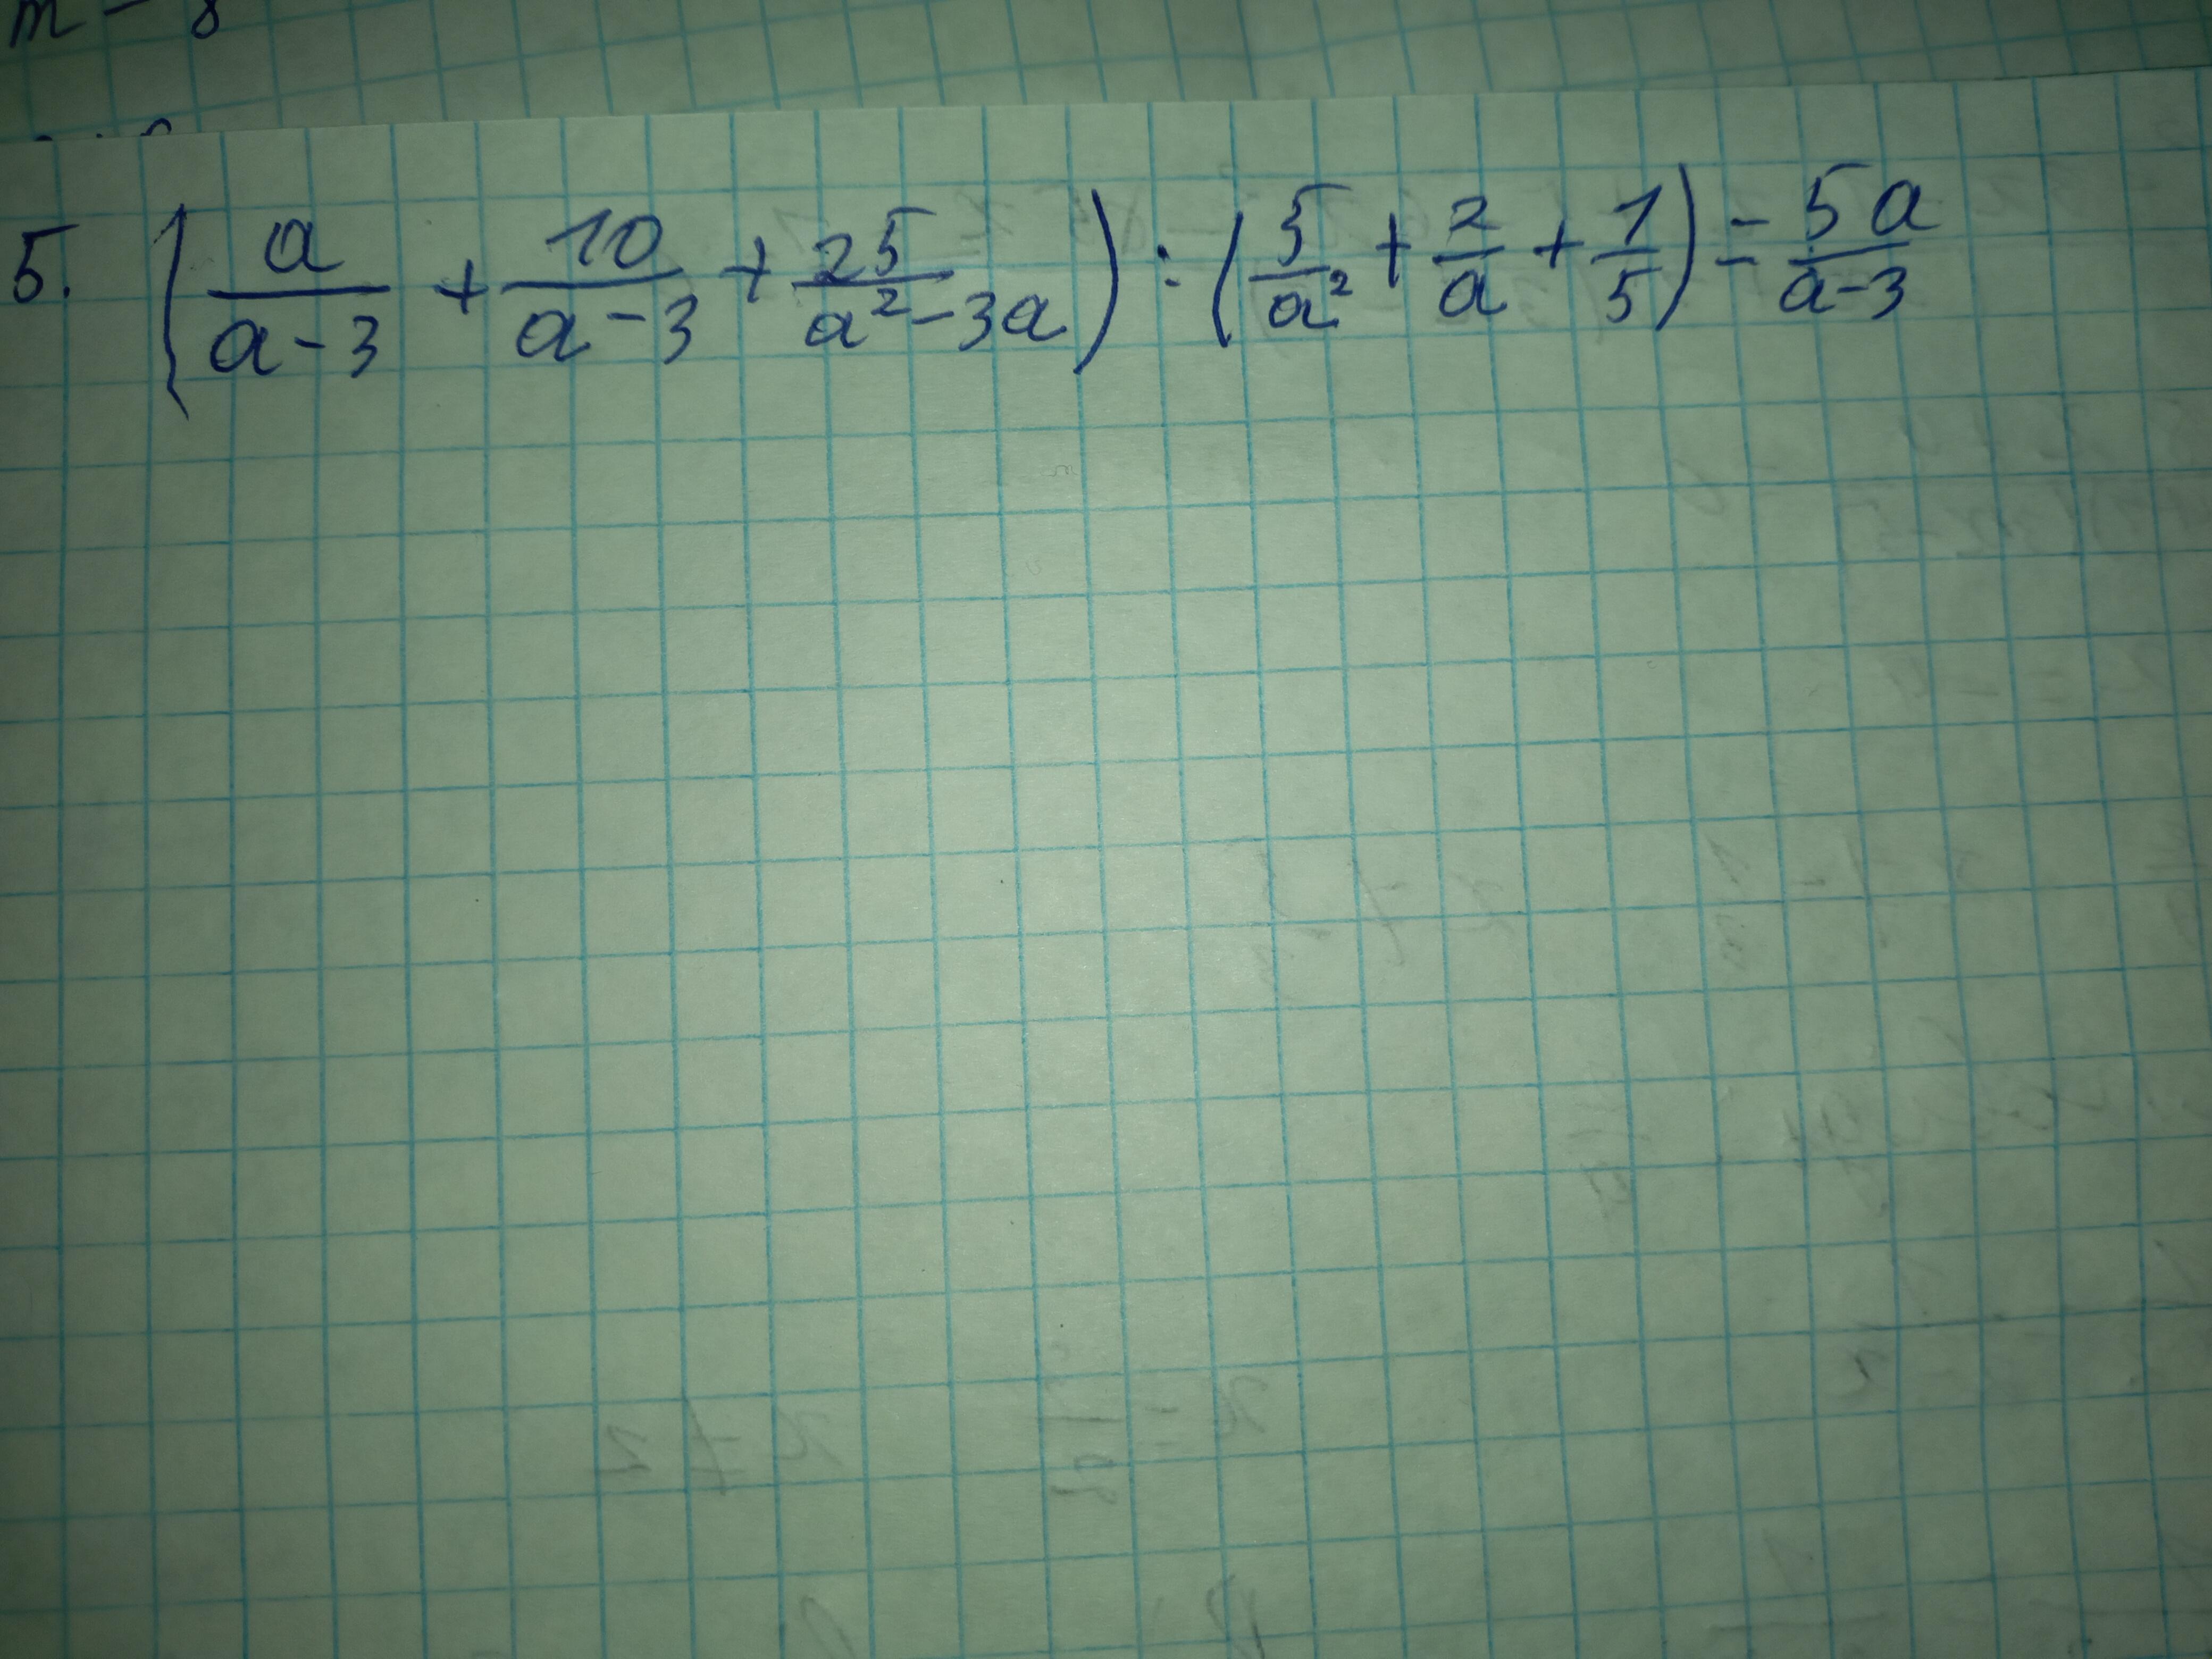 m - 8
5. (a/(a-3) + 10/(a-3) + 25/(a²-3a)) : (5/a² + 2/a + 1/5) = 5a/(a-3)